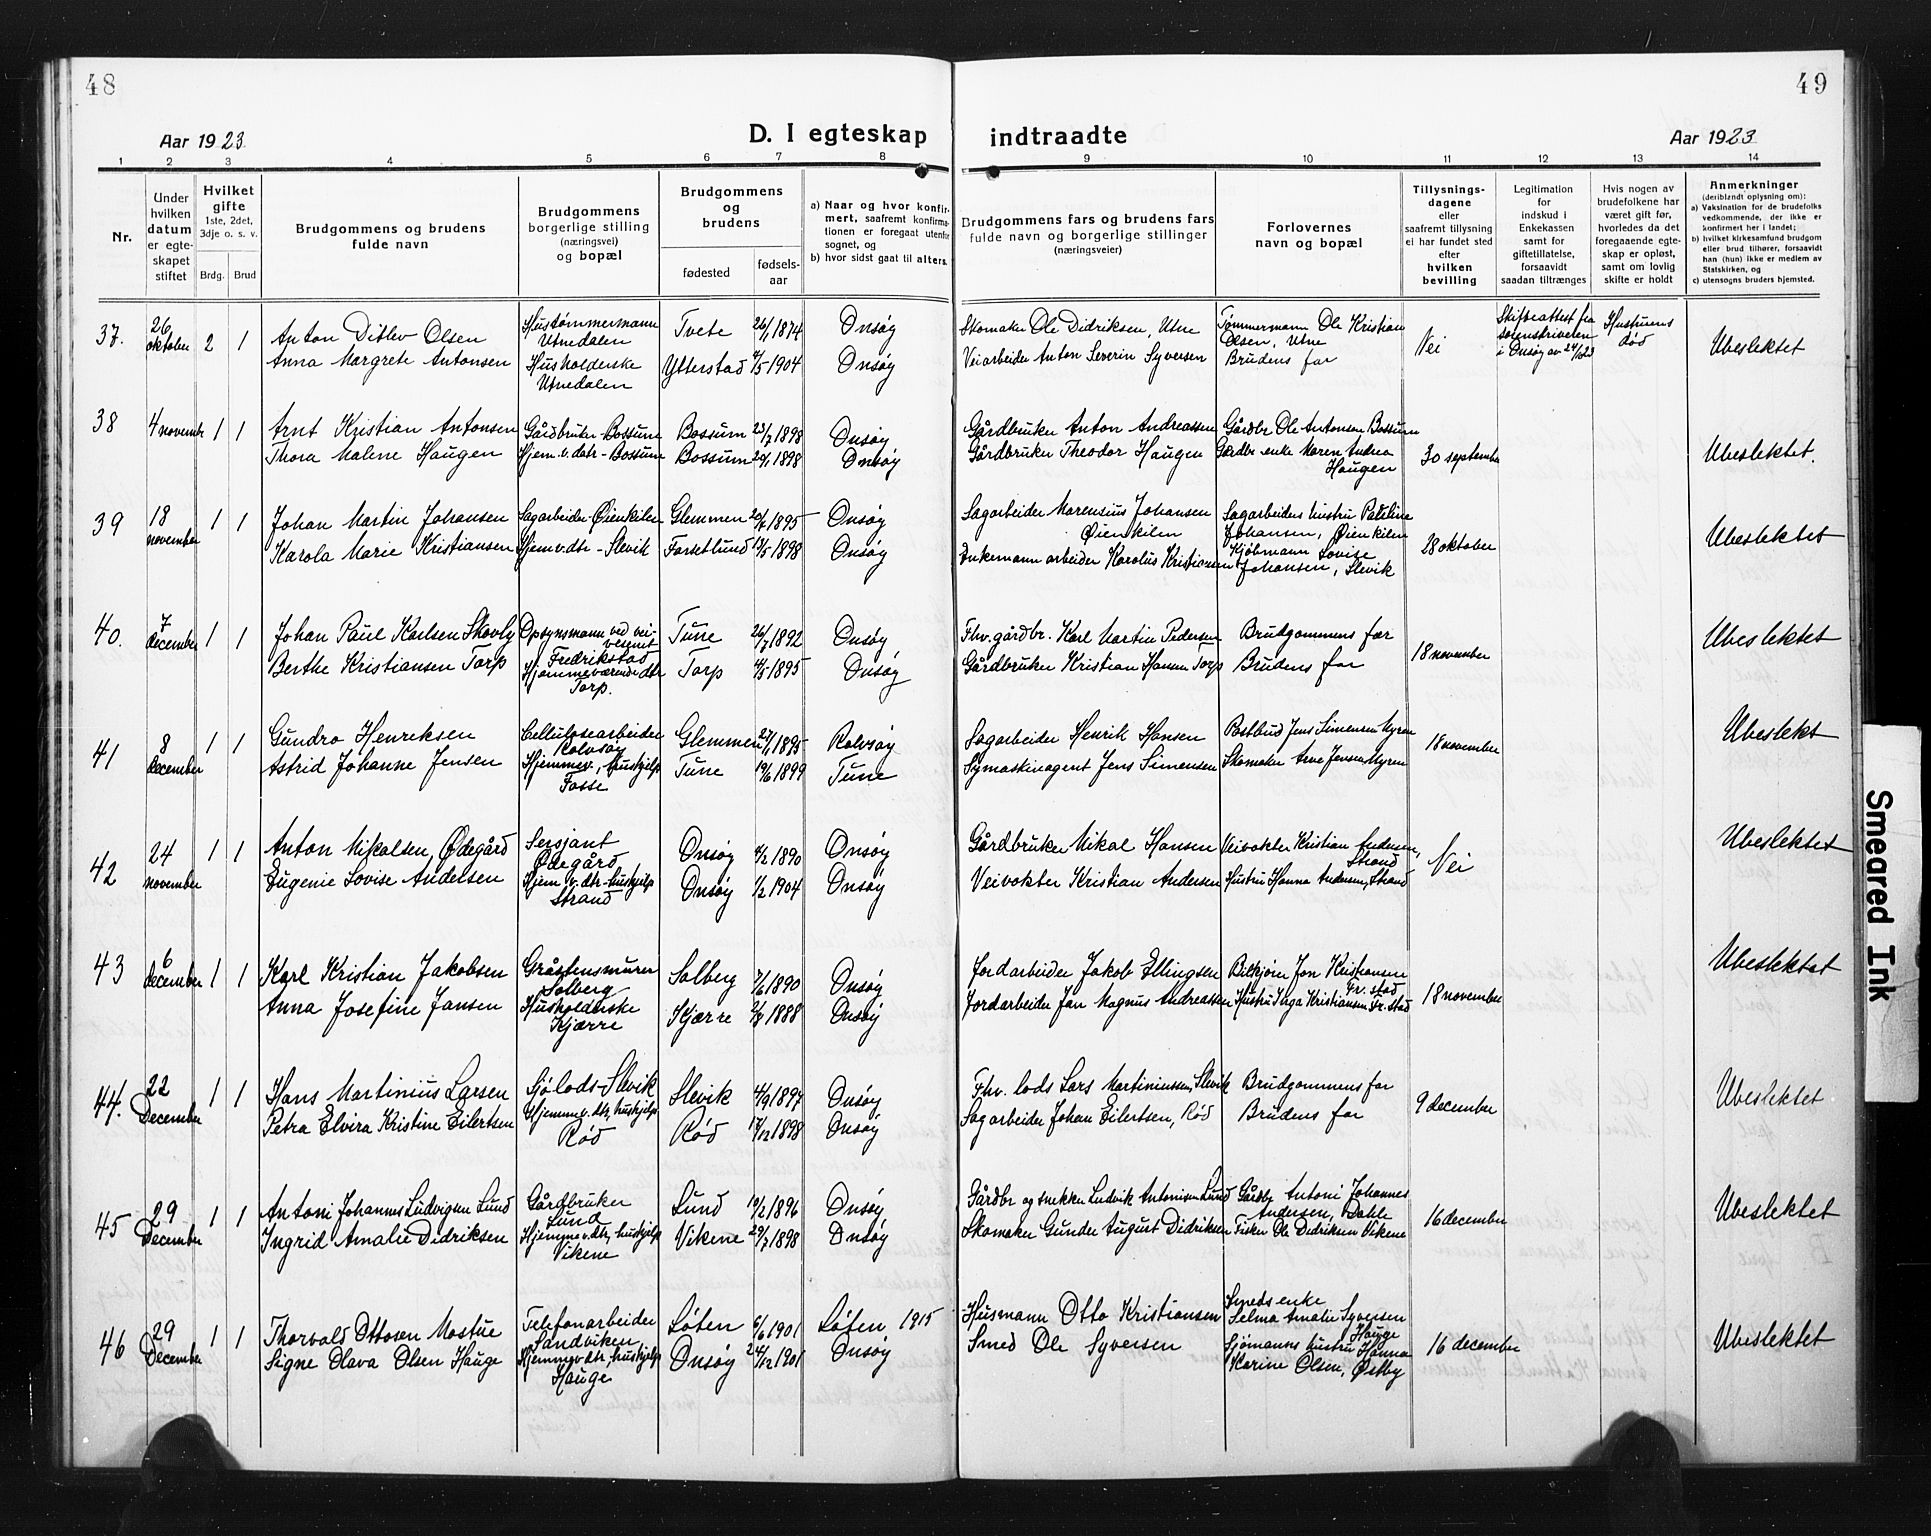 48
49
Aar 1923
D. I egteskap indtraadte
Aar 1923
1 2 3 4 5 6 7 8 9 10 11 12 13 14
Nr.
Under hvilken datum er egteskapet stiftet
Hvilket gifte
1ste, 2det, 3dje o. s. v.
Brdg. Brud
Brudgommens og brudens fulde navn
Brudgommens borgerlige stilling (næringsvei) og bopæl
Brudgommens og brudens
fødested
fødselsaar
a) Naar og hvor konfirmert, saafremt konfirmationen er foregaat utenfor sognet, og
b) hvor sidst gaat til alters.
Brudgommens fars og brudens fars fulde navn og borgerlige stillinger (næringsveier)
Forlovernes navn og bopæl
Tillysningsdagene eller saafremt tillysning ei har fundet sted efter hvilken bevilling
Legitimation for indskud i Enkekassen samt for giftetillatelse, forsaavidt saadan tiltrænges
Hvis nogen av brudefolkene har været gift før, hvorledes da det foregaaende egteskap er opløst, samt om lovlig skifte er holdt
Anmerkninger (deriblandt oplysning om):
a) Vaksination for de brudefolks vedkommende, der ikke er konfirmert her i landet;
b) hvilket kirkesamfund brudgom eller brud tilhører, forsaavidt han (hun) ikke er medlem av Statskirken, og
c) utensogns bruders hjemsted.
37. 26 oktober 2 1
Anton Ditlev Olsen Hustømmermann Utnedalen Tvete 26/1 1874 Onsøy Skomaker Ole Didriksen, Utne Tømmermann Ole Kristian Olsen, Utne
Anna Margrete Antonsen Husholderske Utnedalen Ytterstad 4/5 1904 Onsøy Veiarbeider Anton Severin Syversen Brudens far
Nei Skifteattest fra sorenskriveren i Onsøy av 24/1023 Hustruens død Ubeslektet
38 4 novembr 1 1
Arnt Kristian Antonsen Gårdbruker Bossum Bossum 23/7 1898 Onsøy Gårdbruker Anton Andreassen Gårdbr Ole Antonsen Bossum
Thora Malene Haugen Hjem.v.dtr - Bossum Bossum 20/1 1898 Onsøy Gårdbruker Theodor Haugen Gårdbr enke Maren Andrea Haugen
30 september Ubeslektet.
39 18 november 1 1
Johan Martin Johansen Sagarbeider Øienkilen Glemmen 1895 Onsøy Sagarbeider Marensius Johansen Øienkilen Sagarbeiders hustru Pauline Johansen, Øienkilen
Karola Marie Kristiansen Hjemv.dtr - Slevik Forsetlund 13/5 1898 Onsøy Enkemann arbeider Karolus Kristiansen Kjøbmann Lovise Johansen, Slevik
28 oktober Ubeslektet
40. 7 december 1 1
Johan Paul Karlsen Skovly Opsynsmann ved veivesenet Fredrikstad Tune 26/7 1892 Onsøy Fhv. gårdbr. Karl Martin Pedersen Brudgommens far
Berthe Kristiansen Torp Hjemmeværende dtr Torp. Torp 4/3 1895 Onsøy Gårdbruker Kristian Hansen Torp Brudens far
18 november Ubeslektet
41 8 december 1 1
Gundro Henriksen Cellulosearbeider Rolvsøy Glemmen 27/1 1895 Rolvsøy Sagarbeider Henrik Hansen Postbud Jens Simensen Myren
Astrid Johanne Jensen Hjemmev., hushjelp Fosse Tune 19/6 1899 Tune Symaskinagent Jens Simensen Skomaker Arve Jensen Myren
18 november Ubeslekt
42 24 november 1 1
Anton Mikalsen, Ødegård Sersjant Ødegård Onsøy 4/2 1890 Onsøy Gårdbruker Mikal Hansen Veivokter Kristian Andersen, Strand
Eugenie Lovise Andersen Hjem.v.dtr - hushjelp Strand Onsøy 1/2 1904 Onsøy Veivokter Kristian Andersen Hustru Hanna Andersen, Strand
Nei Ubeslektet
43 6 december 1 1
Karl Kristian Jakobsen Gråstensmurer Solberg Solberg 7/6 1890 Onsøy Jordarbeider Jakob Ellingsen Bilkjører Jon Kristiansen Fr. stad
Anna Josefine Jansen Husholderske Kjærre Kjærre 2/8 1888 Onsøy Jordarbeider Jan Magnus Andreassen Hustru Inga Kristiansen Fr. stad
18 november Ubeslektet
44. 22 December 1 1
Hans Martinius Larsen Sjølods - Slevik Slevik 4/9 1897 Onsøy Fhv. lods Lars Martiniussen, Slevik Brudgommens far
Petra Elvira Kristine Eilertsen Hjemmev.dtr, hushjelp Rød Rød 17/12 1898 Onsøy Sagarbeider Johan Eilertsen, Rød Brudens far
9 december Ubeslektet
45 29 December 1 1
Antoni Johannes Ludvigsen Lund Gårdbruker Lund Lund 10/2 1896 Onsøy Gårdbr og snekker Ludvik Antonisen Lund Gårdbr Antoni Johannes Andersen, Dahle
Ingrid Amalie Didriksen Hjemmev.dtr, hushjelp Vikene Vikene 29/7 1898 Onsøy Skomaker Gunder August Didriksen Fisker Ole Didriksen Vikene
16 december Ubeslektet
46 29 December 1 1
Thorvald Ottosen Mostue Telefonarbeider Sandviken Løten 6/6 1901 Løten 1915 Husmann Otto Kristiansen Smeds enke Selma Amalie Syversen Hauge
Signe Olava Olsen Hauge Hjemmev.dtr, hushjelp Hauge Onsøy 24/12 1901 Onsøy Smed Ole Syversen Sjømanns hustru Hanna Karine Olsen, Østby
16 december Ubeslektet
Smeared Ink